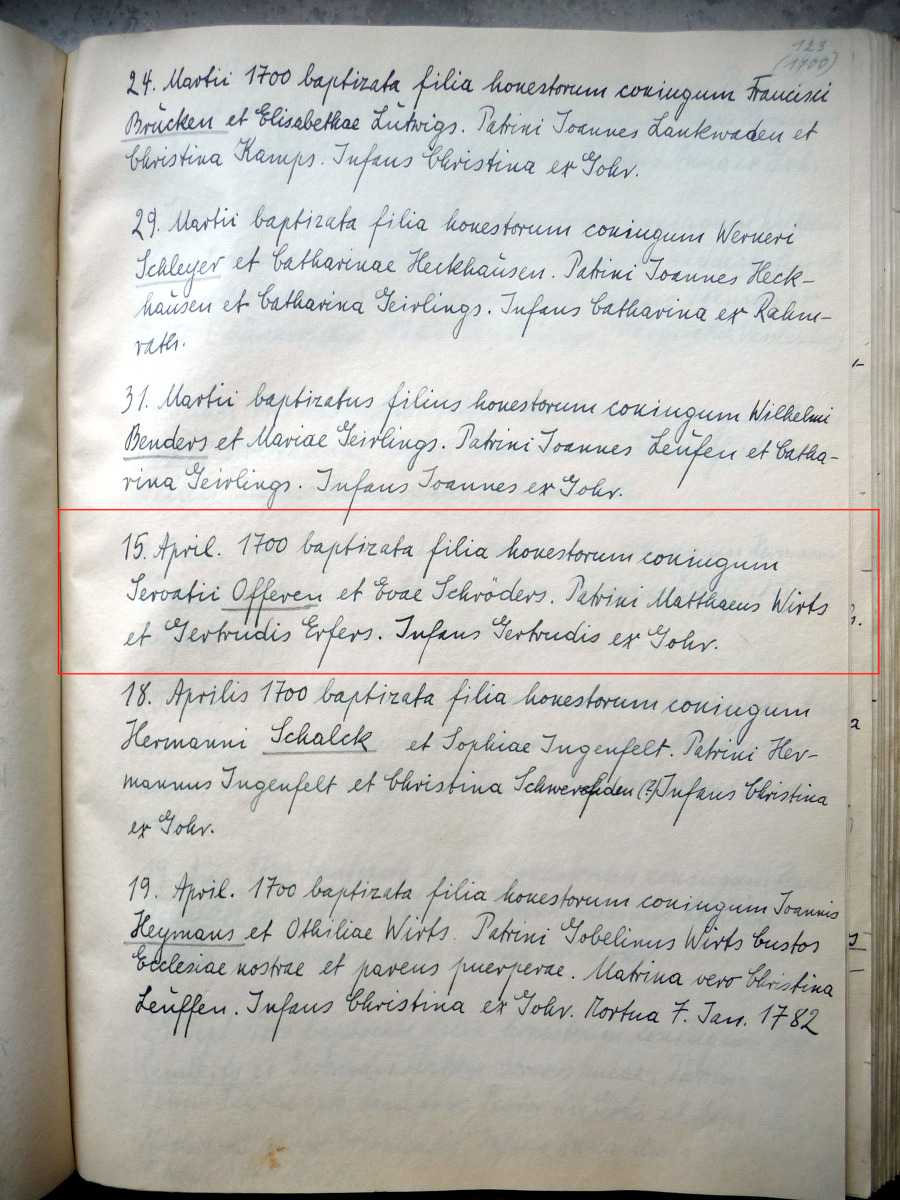 123
(1700)
24. Martii 1700 baptizata filia honestorum coniugum Francisci
Brücken et Elisabethae Lütwigs. Patrini Joannes Lankwaden et
Christina Kamps. Infans Christina ex Gohr.
29. Martii baptizata filia honestorum coniugum Werneri
Schleyer et Catharinae Heckhaüsen. Patrini Joannes Heck-
haüsen et Catharina Geirlings. Infans Catharina ex Rahm-
rath.
31. Martii baptizatus filius honestorum coniugum Wilhelmi
Benders et Mariae Geirlings. Patrini Joannes Leüfen et Catha-
rina Geirlings. Infans Joannes ex Gohr.
15. April. 1700 baptizata filia honestorum coniugum
Servatii Offeren et Evae Schröders. Patrini Matthaeus Wirts
et Gertrudis Erfers. Infans Gertrudis ex Gohr.
18. Aprilis 1700 baptizata filia honestorum coniugum
Hermanni Schalck et Sophiae Ingenfelt. Patrini Her-
mannus Ingenfelt et Christina (?) Infans Christina
ex Gohr.
19. April. 1700 baptizata filia honestorum coniugum Joannis
Heymans et Othiliae Wirts. Patrini Gobelinus Wirts Custos
Ecclesiae nostrae et parens puerperae. Matrina vero Christina
Leüffen. Infans Christina ex Gohr. Mortua 7. Jan. 1782